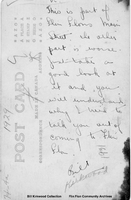 This is part of
Flin Flons Main
Street the other
part is worse.
Just take a
good look at
it and you
will understand
why I tried to
tell you out of
coming to the
Flin
Bill
POST CARD
1929
Bill Kirkwood Collection
Flin Flon Community Archives